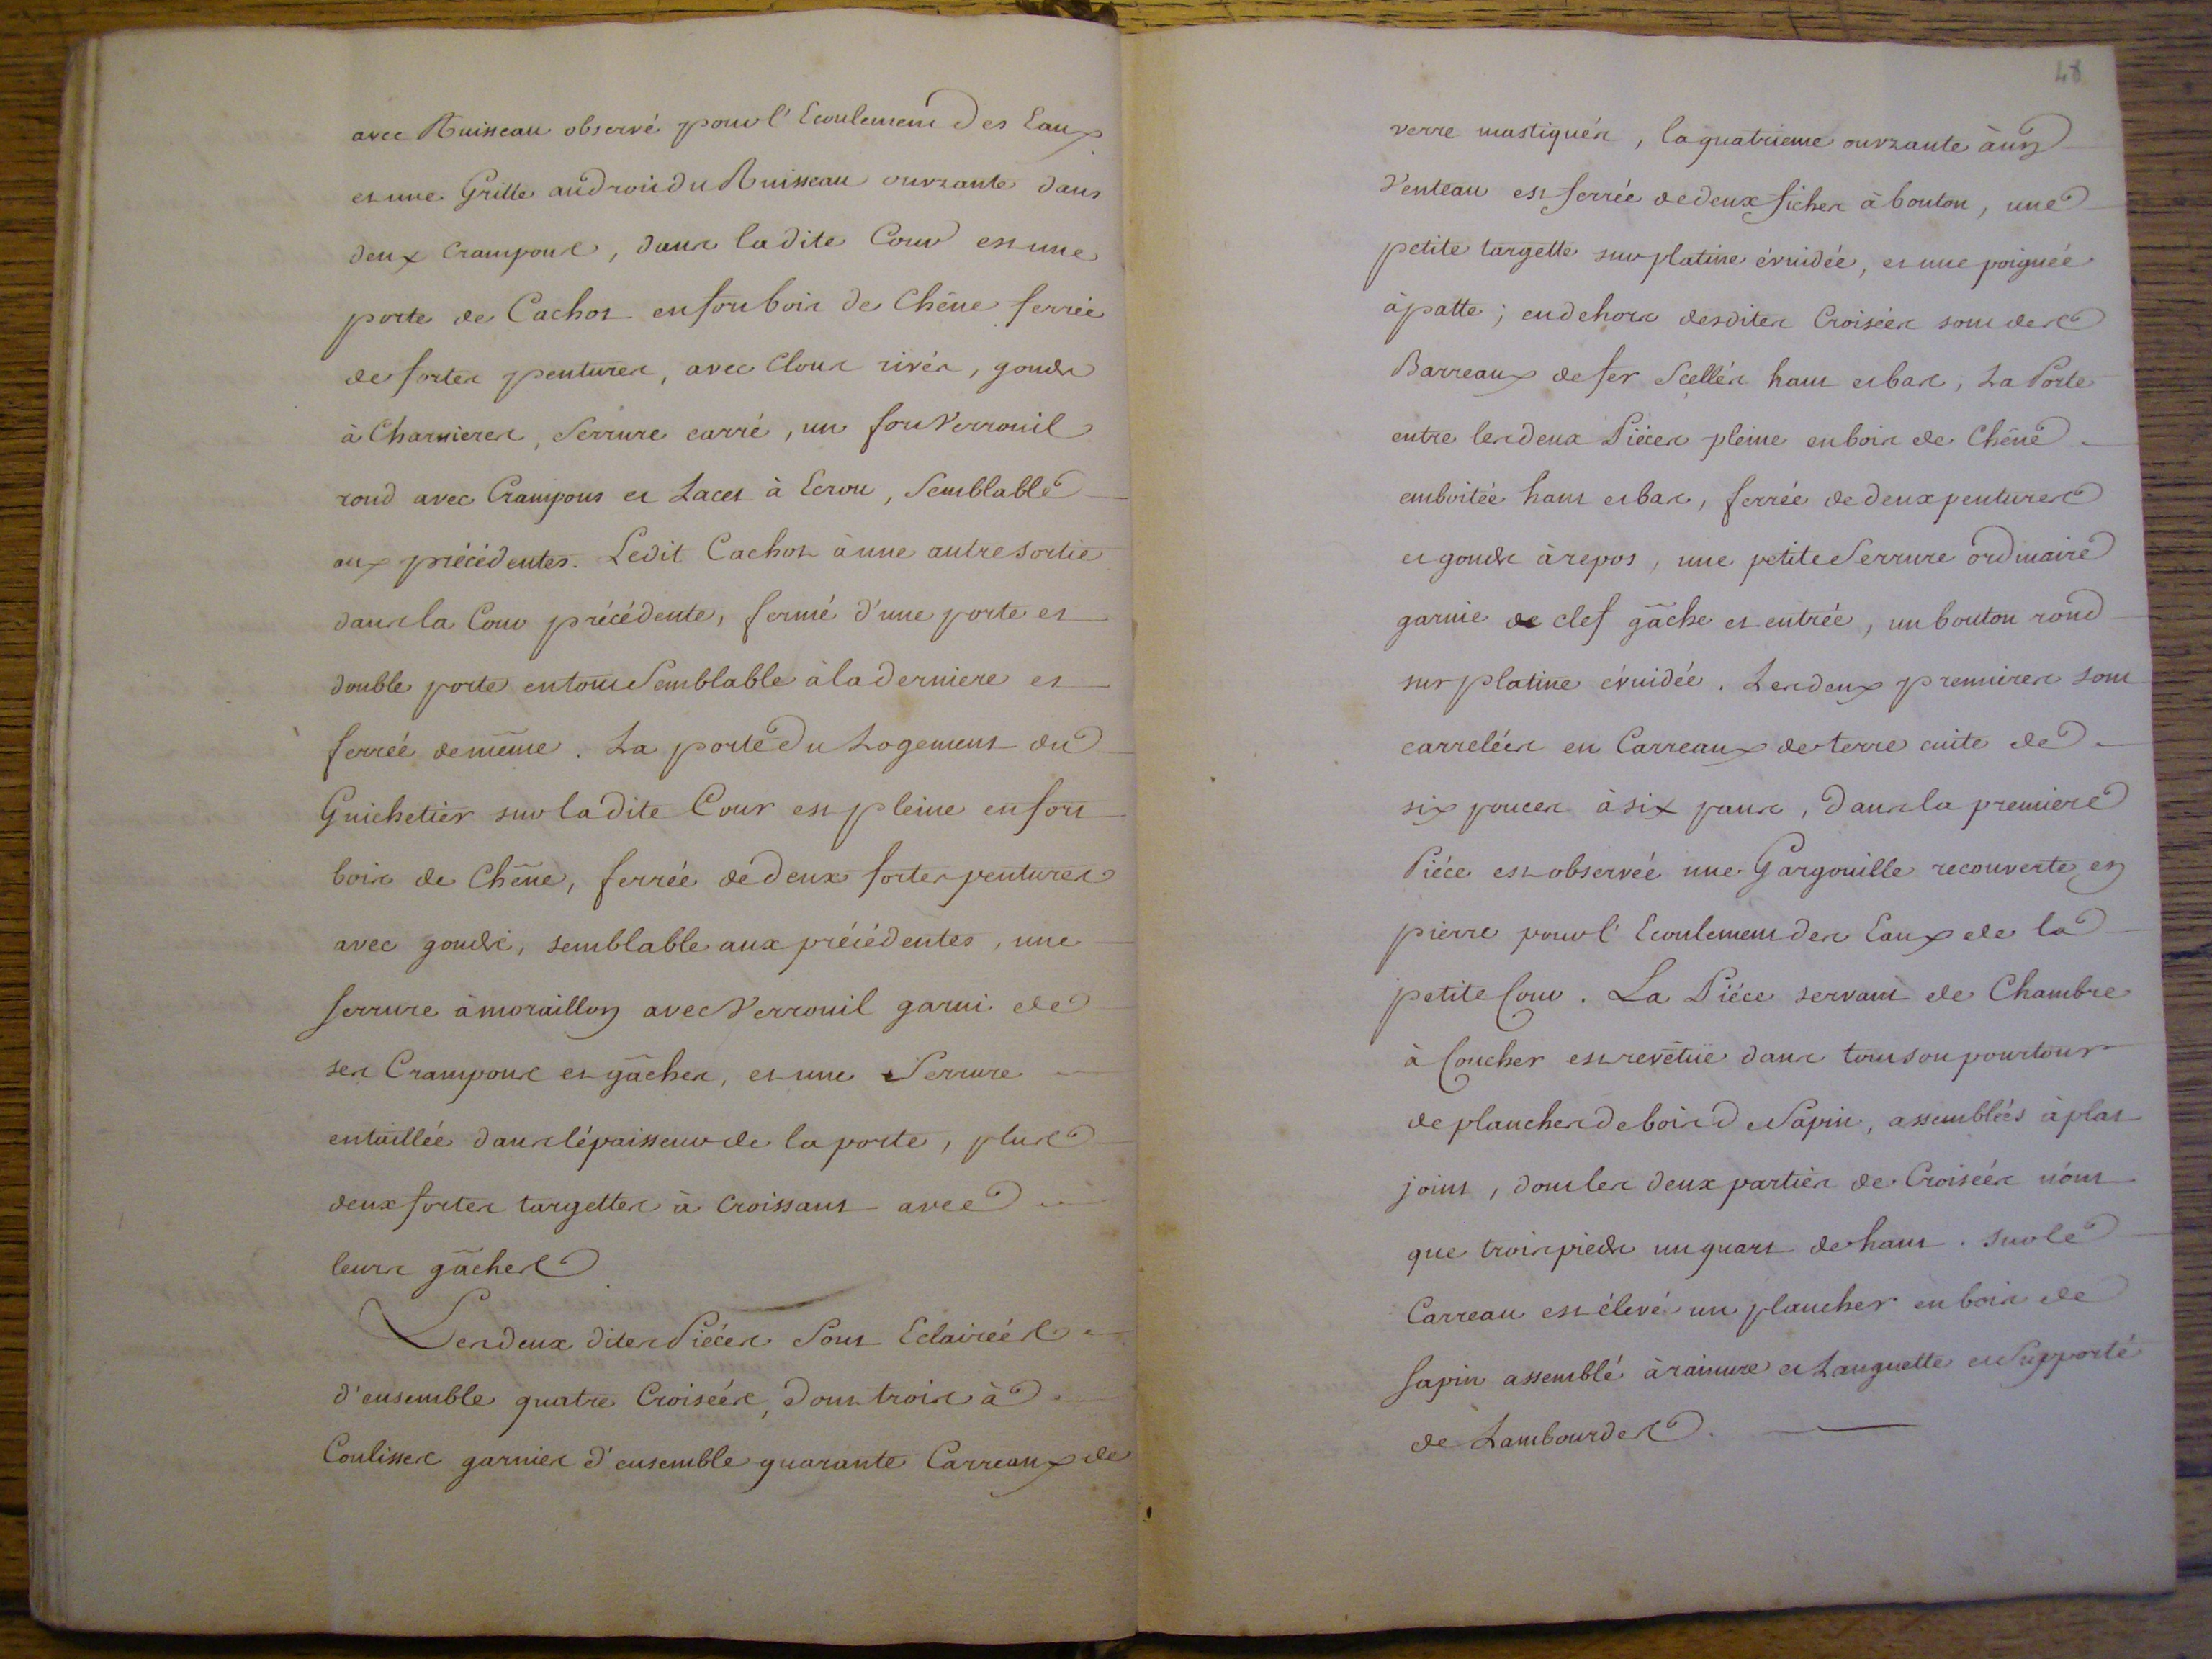 avec Ruisseau observé pour l'Ecoulement des Eaux
et une Grille au droit du Ruisseau ouvrante dans
deux crampons, dans la dite Cour est une
porte de Cachot en fort bois de Chêne ferrée
de fortes pentures, avec Cloux rivés, gonds
à Charnieres, Serrure carré, un fort Verrouil
rond avec Crampons et Lacet à Ecrou, Semblable
aux précédentes. Ledit Cachot à une autre sortie
dans la Cour précédente, fermé d'une porte et
double porte en tout Semblable à la derniere et
ferrée de même. La porte du Logement du
Guichetier sur ladite Cour est pleine en fort
bois de Chêne, ferrée de deux fortes pentures
avec gonds, semblable aux précédentes, une
serrure à moraillon avec Verrouil garni de
ses Crampons et gâches, et une Serrure
entaillée dans lépaisseur de la porte, plus
deux fortes targettes à Croissant avec
leurs gâches
Les deux dites Piéces Sont Eclairées
d'ensemble quatre Croisées, dont trois à
Coulisses garnies d'ensemble quarante Carreaux de
48
verre mastiqués, la quatrieme ouvrante à un
Venteau est ferrée de deux fiches à bouton, une
petite targette sur platine évuidée, et une poignée
à patte; en dehors desdites Croisées sont des
Barreaux de fer Scellés haut et bas, La Porte
entre les deux Piéces pleine en bois de Chêne
emboitée haut et bas, ferrée de deux pentures
et gonds à repos, une petite Serrure ordinaire
garnie de clef gâche et entrée, un bouton rond
sur platine évuidée. Les deux premieres sont
carrelées en Carreaux de terre cuite de
six pouces à six pans, Dans la premiere
Piéce est observée une Gargouille recouverte en
pierre pour l'Ecoulement des Eaux de la
petite Cour. La Piéce servant de Chambre
à Coucher est revêtüe dans tout son pourtour
de planches de bois de Sapin, assemblées à plat
joint, dont les deux parties de Croisées n'ont
que trois pieds un quart de haut. sur le
Carreau est élevé un plancher en bois de
sapin assemblé à rainure et Languette et Supporté
de Lambourdes.